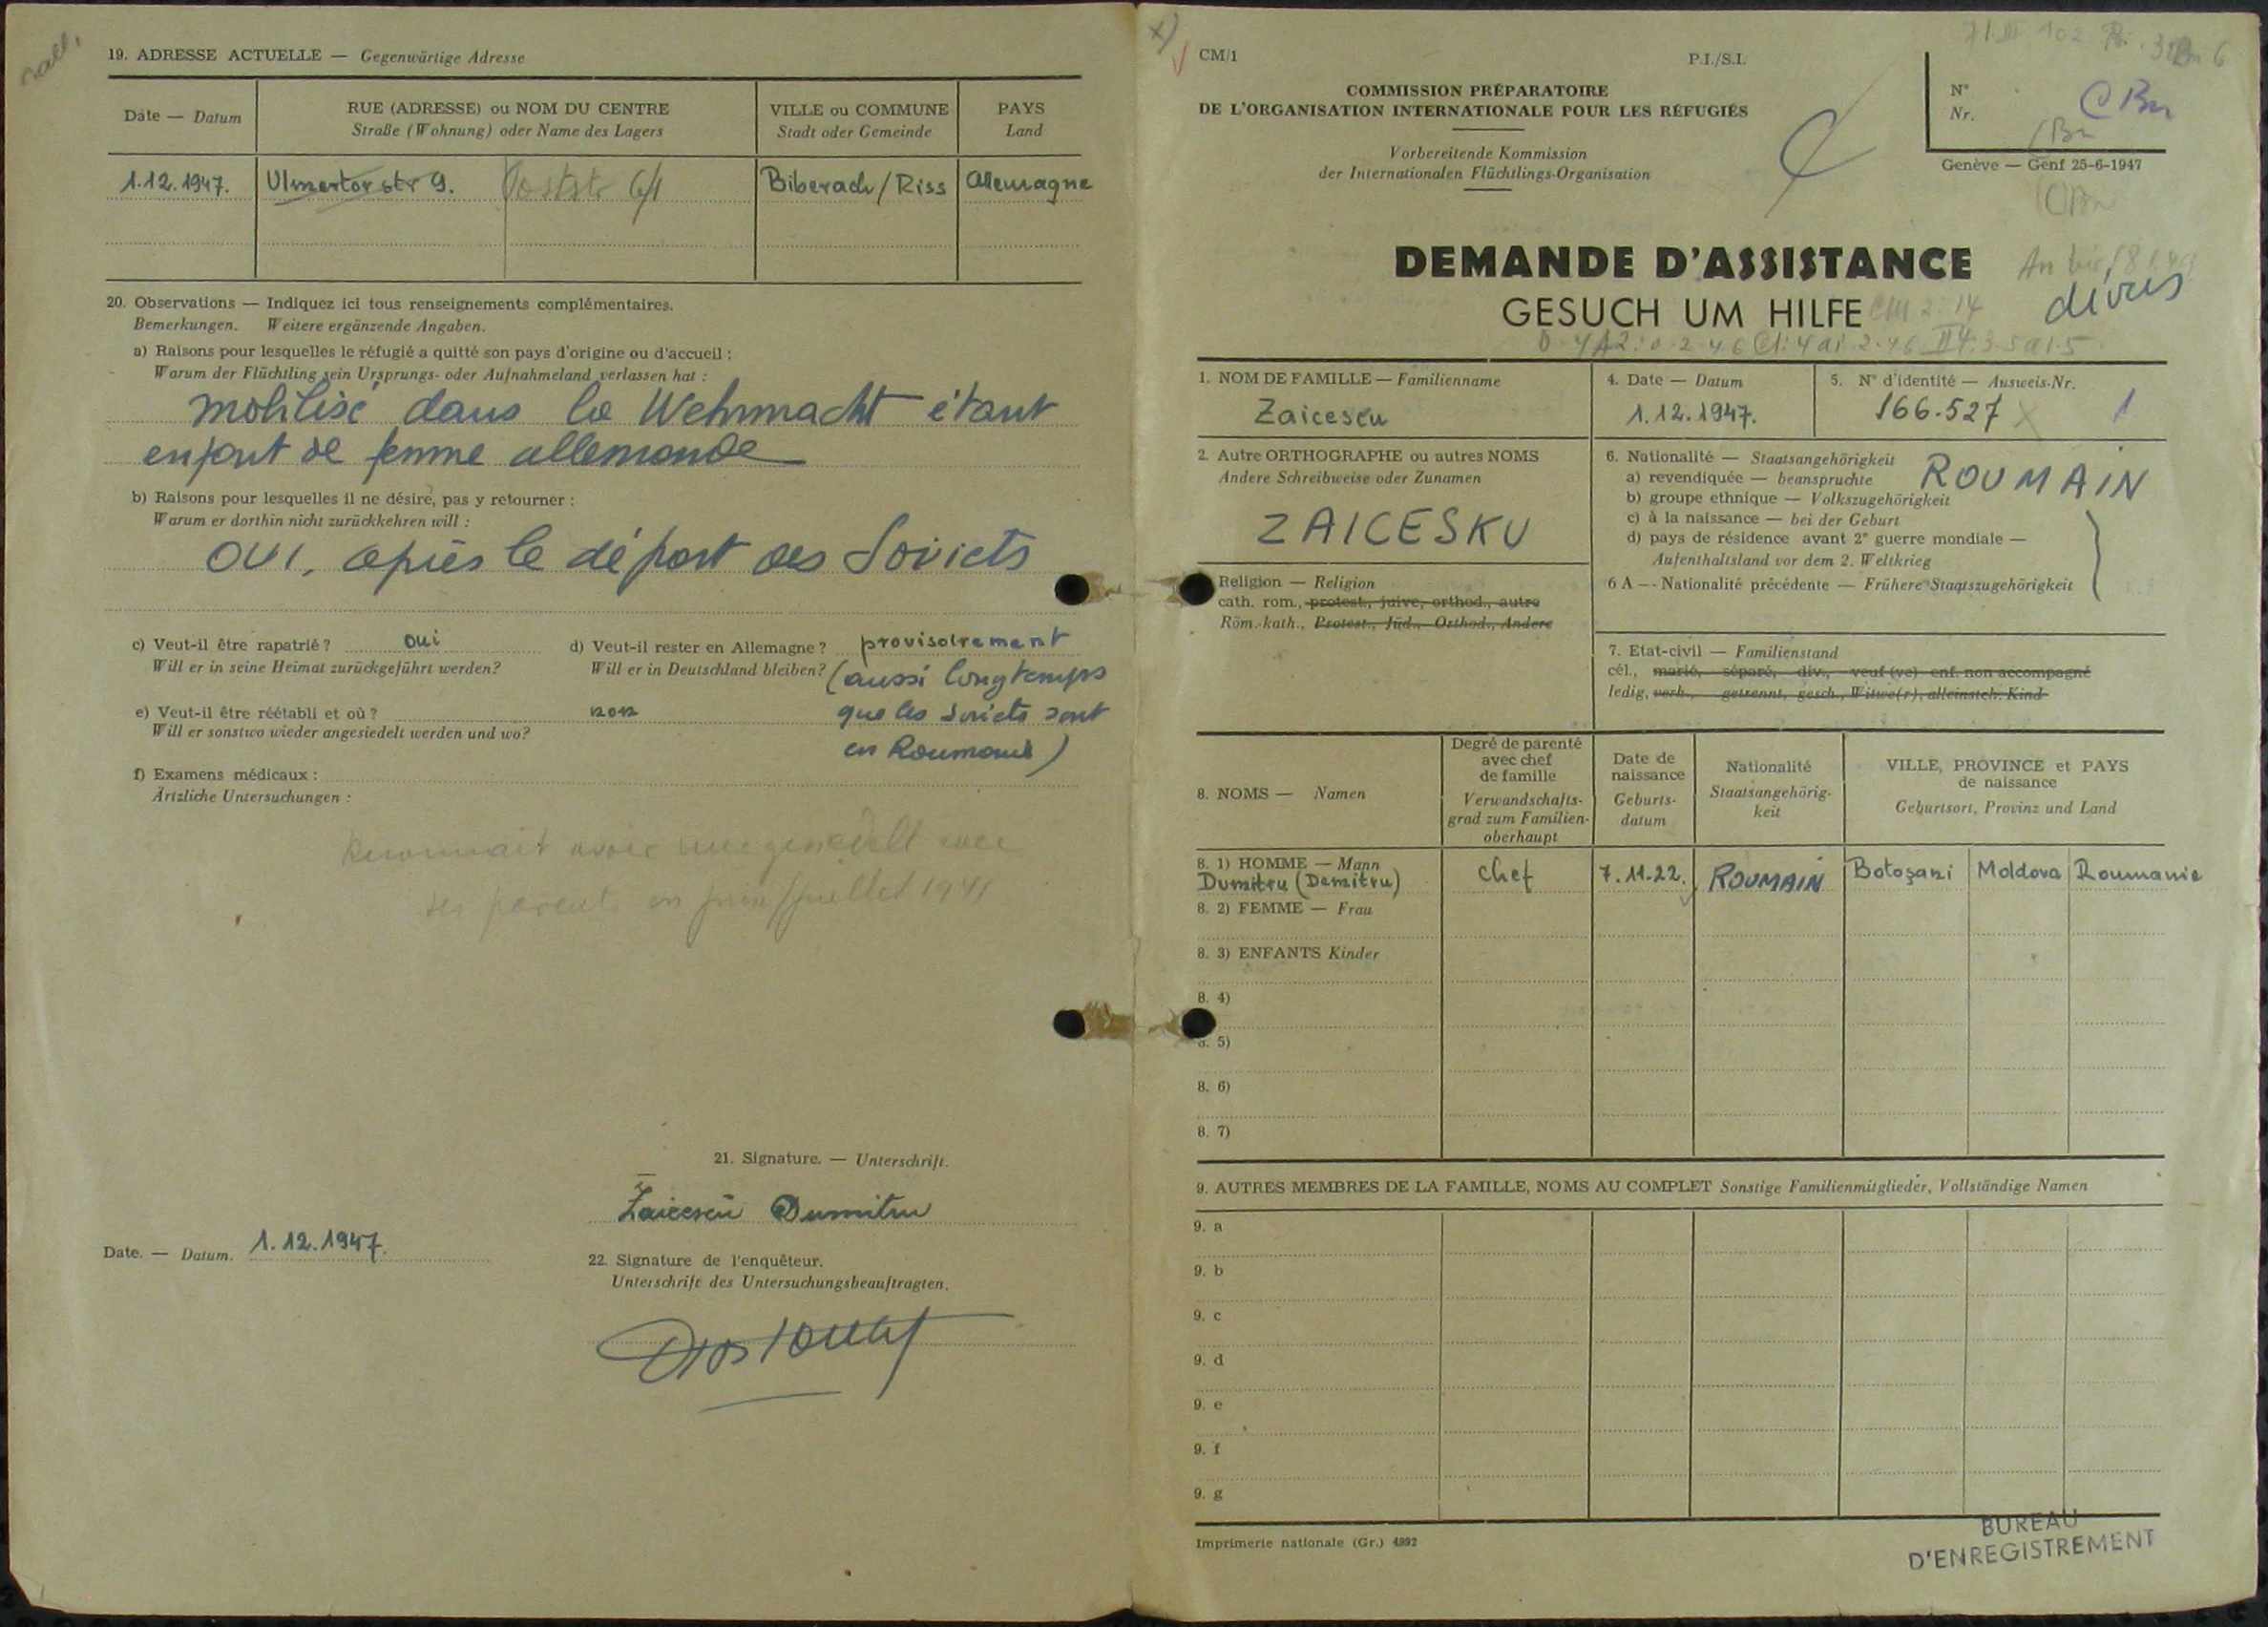 19. ADRESSE ACTUELLE — Gegenwärtige Adresse
Date — Datum
RUE (ADRESSE) ou NOM DU CENTRE
Straße (Wohnung) oder Name des Lagers
VILLE ou COMMUNE
Stadt oder Gemeinde
PAYS
Land
1.12.1947. Ulmertorstr 9. Poststr 6/1 Biberach/Riss Allemagne
20. Observations — Indiquez ici tous renseignements complémentaires.
Bemerkungen. Weitere ergänzende Angaben.
a) Raisons pour lesquelles le réfugié a quitté son pays d'origine ou d'accueil :
Warum der Flüchtling sein Ursprungs- oder Aufnahmeland verlassen hat :
mobilisé dans la Wehrmacht étant
enfant de femme allemande
b) Raisons pour lesquelles il ne désire, pas y retourner :
Warum er dorthin nicht zurückkehren will :
OUI, après le départ des Soviets
c) Veut-il être rapatrié ? oui
Will er in seine Heimat zurückgeführt werden?
d) Veut-il rester en Allemagne ? provisoirement
Will er in Deutschland bleiben? (aussi longtemps
que les Soviets sont
en Roumanie)
e) Veut-il être réétabli et où ? non
Will er sonstwo wieder angesiedelt werden und wo?
f) Examens médicaux :
Ärtzliche Untersuchungen :
ses parents en juin/juillet 1941
21. Signature. — Unterschrift.
Zaicescu Dumitru
Date. — Datum. 1.12.1947.
22. Signature de l'enquêteur.
Unterschrift des Untersuchungsbeauftragten.
CM/1
P.I./S.I.
COMMISSION PRÉPARATOIRE
DE L'ORGANISATION INTERNATIONALE POUR LES RÉFUGIÉS
Vorbereitende Kommission
der Internationalen Flüchtlings-Organisation
N°
Nr.
C Bn
Genève — Genf 25-6-1947
DEMANDE D'ASSISTANCE
GESUCH UM HILFE
divers
1. NOM DE FAMILLE — Familienname
Zaicescu
4. Date — Datum
1.12.1947.
5. N° d'identité — Ausweis-Nr.
166.527
2. Autre ORTHOGRAPHE ou autres NOMS
Andere Schreibweise oder Zunamen
ZAICESKU
6. Nationalité — Staatsangehörigkeit
a) revendiquée — beanspruchte
ROUMAIN
b) groupe ethnique — Volkszugehörigkeit
c) à la naissance — bei der Geburt
d) pays de résidence avant 2e guerre mondiale —
Aufenthaltsland vor dem 2. Weltkrieg
6 A — Nationalité précédente — Frühere Staatszugehörigkeit
Religion — Religion
cath. rom., protest., juive, orthod., autre
Röm.-kath., Protest., Jüd., Orthod., Andere
7. Etat-civil — Familienstand
cél., marié, séparé, div., veuf (ve) enf. non accompagné
ledig, verh., getrennt, gesch., Witwe(r), alleinsteh. Kind
8. NOMS — Namen
Degré de parenté
avec chef
de famille
Verwandschafts-
grad zum Familien-
oberhaupt
Date de
naissance
Geburts-
datum
Nationalité
Staatsangehörig-
keit
VILLE, PROVINCE et PAYS
de naissance
Geburtsort, Provinz und Land
8. 1) HOMME — Mann
Dumitru (Demitru) chef 7.11.22. ROUMAIN Botoşani Moldova Roumanie
8. 2) FEMME — Frau
8. 3) ENFANTS Kinder
8. 4)
8. 5)
8. 6)
8. 7)
9. AUTRES MEMBRES DE LA FAMILLE, NOMS AU COMPLET Sonstige Familienmitglieder, Vollständige Namen
9. a
9. b
9. c
9. d
9. e
9. f
9. g
Imprimerie nationale (Gr.) 4992
BUREAU
D'ENREGISTREMENT